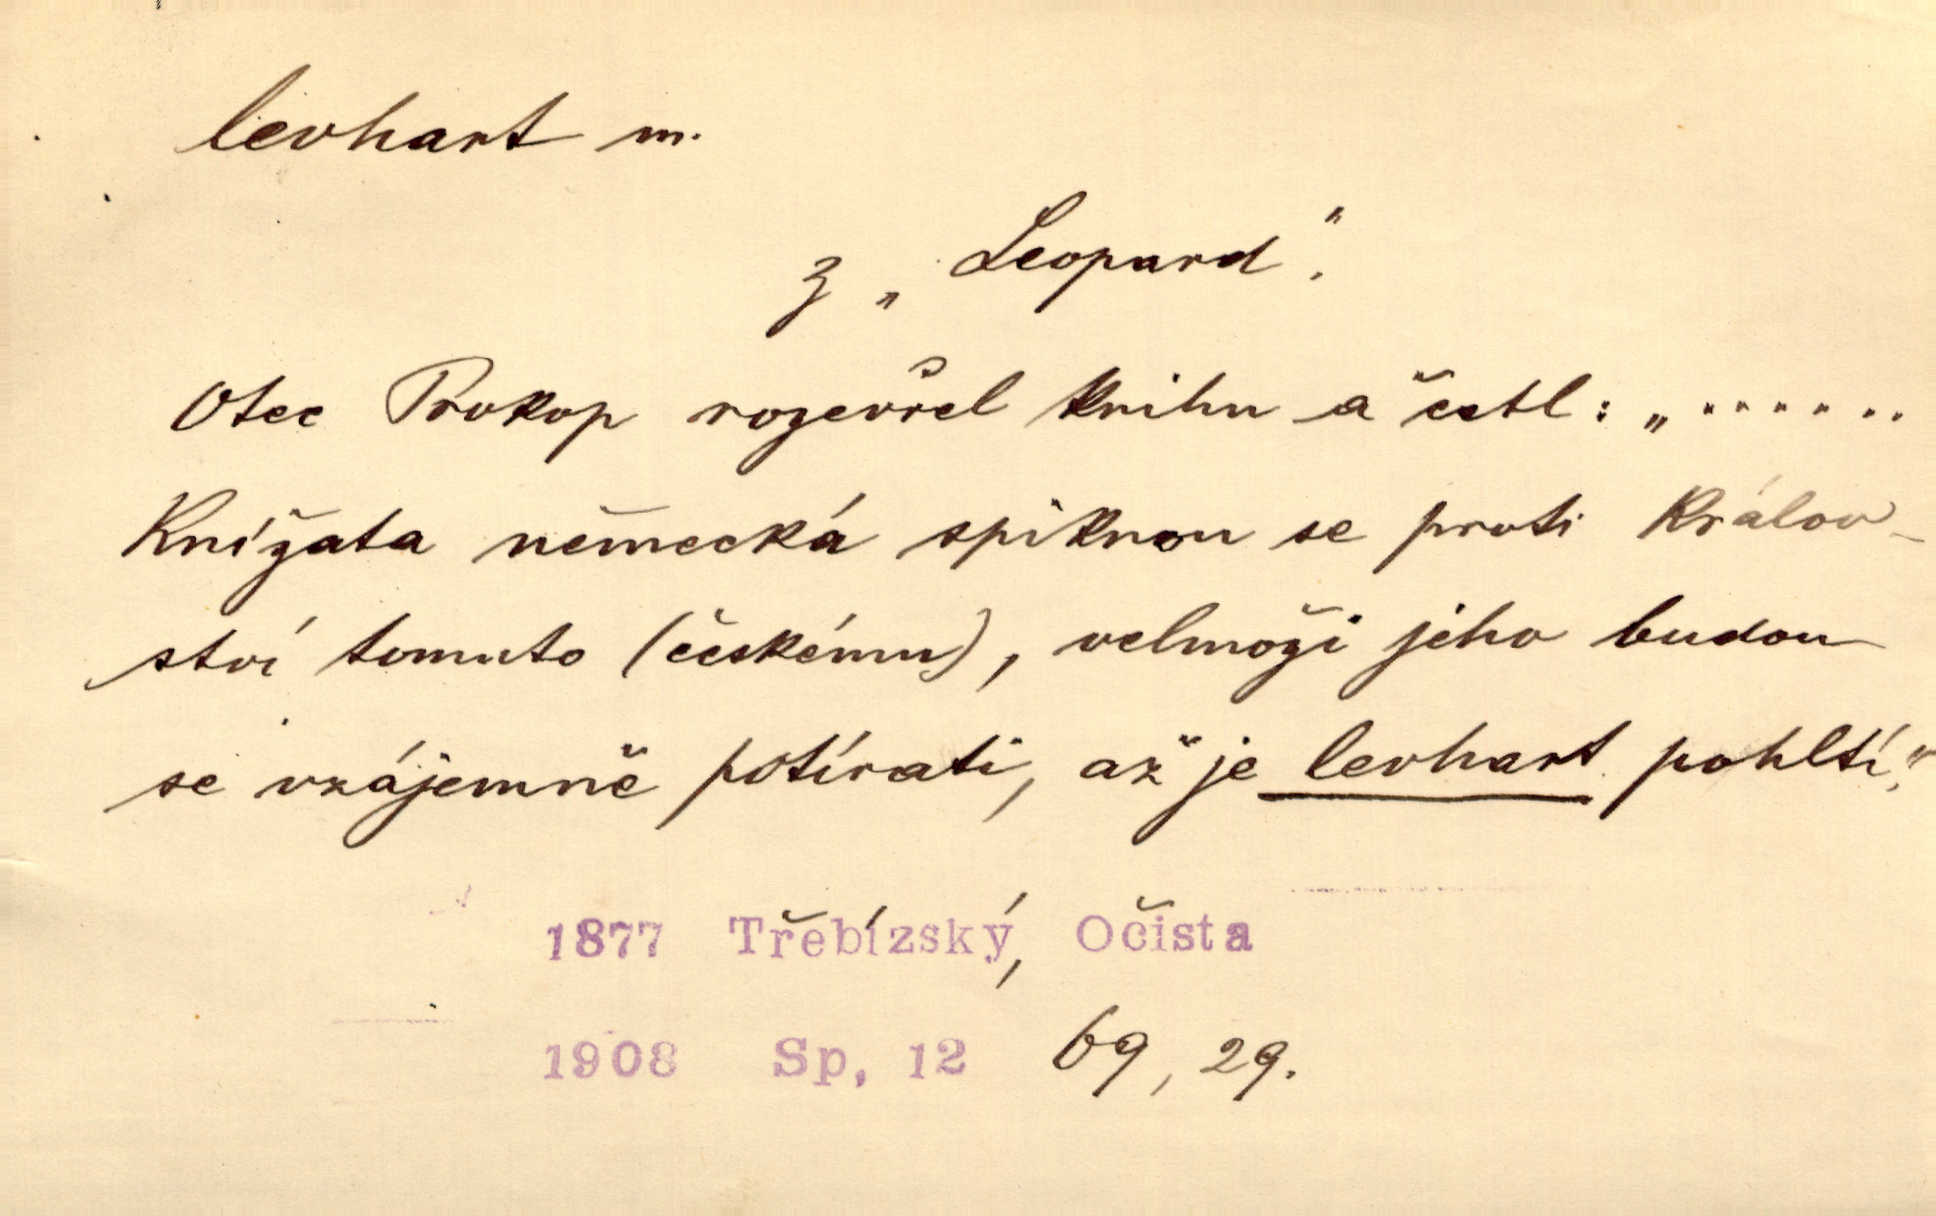 levhart m.
z „Leopard“.
Otec Prokop rozevřel knihu a četl: „.......
Knížata německá spiknou se proti králov-
ství tomuto (českému), velmoži jeho budou
se vzájemně potírati, až je levhart pohltí.“
1877 Třebízský, Očista
1908 Sp, 12 69, 29.